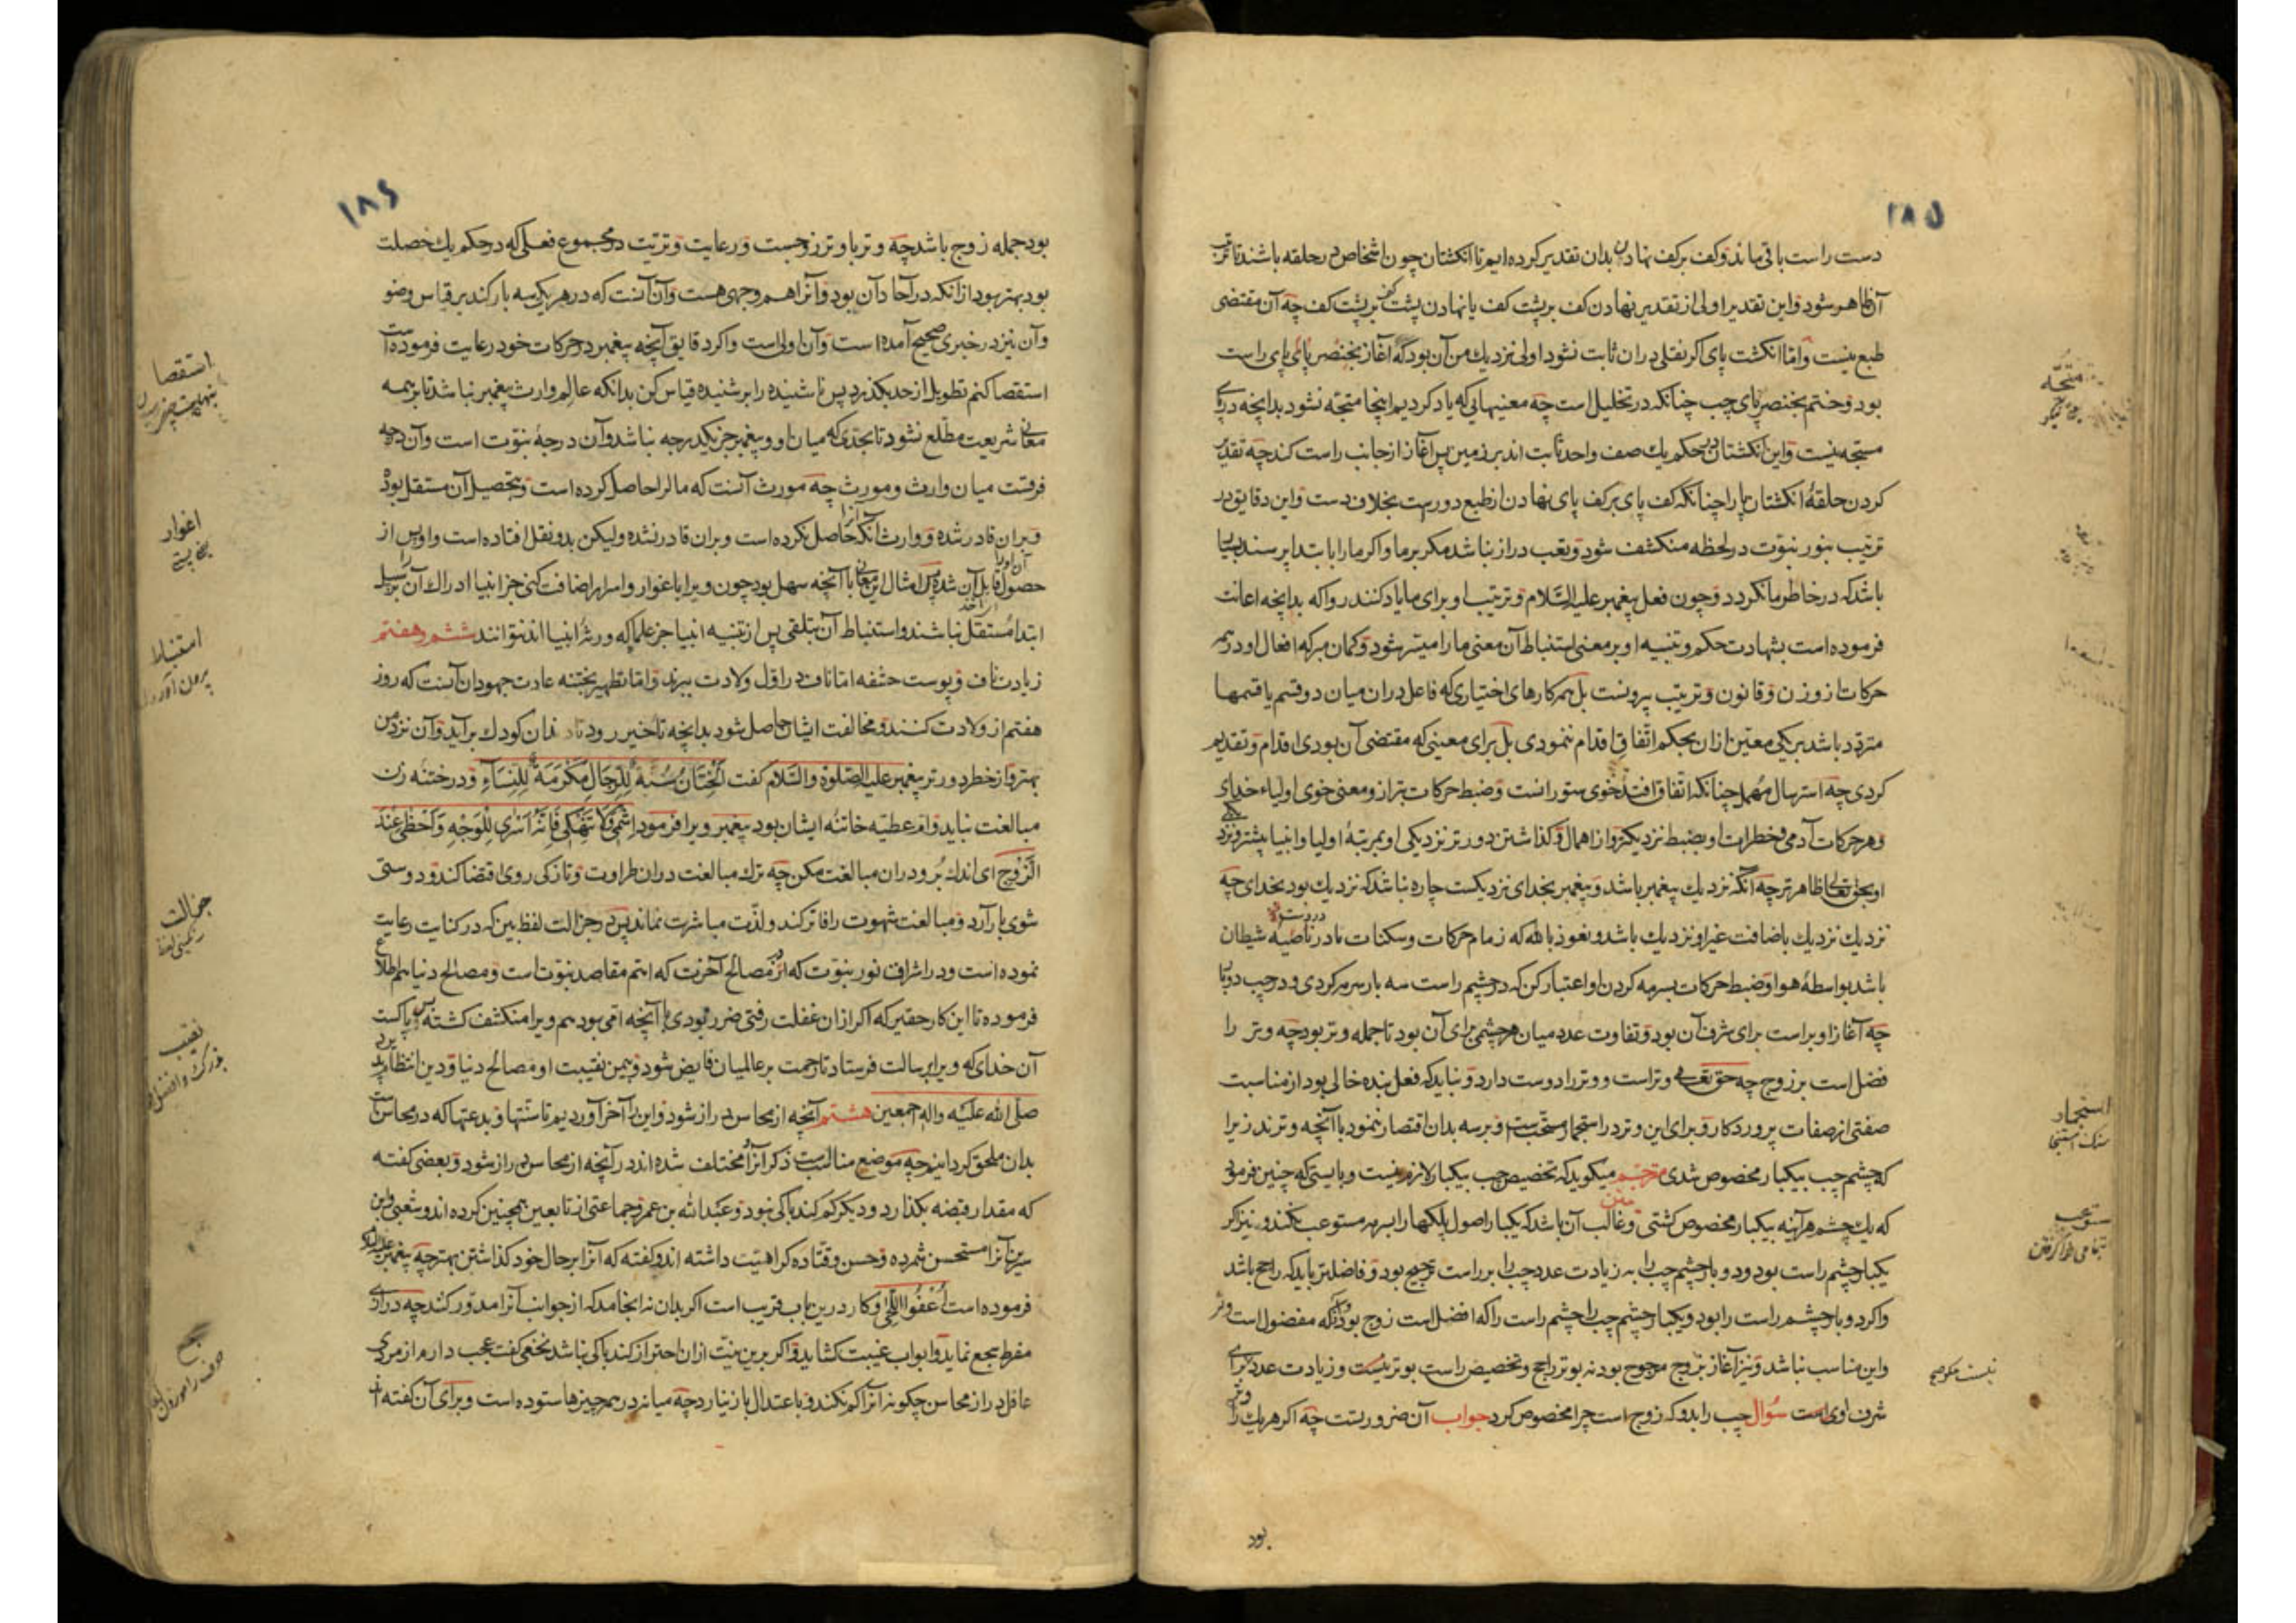 ۱۸۵
دست راست باقی ماند و کف بر کف نهادن بدان تقدیر کرده ایم تا انکشتان چون اشخاص در حلقه باشند تا ترتیب
آن ظاهر شود و این تقدیر اولی از تقدیر نهادن کف بر پشت کف یا نهادن پشت کف بر پشت کف چه آن مقتضی
طبع نیست و اما انکشت پای اکر نقلی دران ثابت نشود اولی نزدیك من آن بود که آغاز بخنصر پای راست
بود و ختم بخنصر پای چپ چنانکه در تخلیل است چه معنیهایی که یاد کردیم اینجا متجه نشود بدانچه در پای
متجه نیست و این انکشتان در حکم یك صف واحد ثابت اند بر زمین پس آغاز از جانب راست کند چه تقدیر
کردن حلقۀ انکشتان پا را چنانکه کف پای بر کف پای نهادن از طبع دورست بخلاف دست و این دقایق در
ترتیب بنور نبوت در لحظه منکشف شود و تعب دراز نباشد مکر بر ما و اکر ما را بابتدا پرسند بسیار
باشد که در خاطر ما نکردد و چون فعل پیغمبر علیه السّلام و ترتیب او برای ما یاد کنند روا که بدانچه اعانت
فرموده است بشهادت حکم و تنبیه او بر معنی استنباط آن معنی ما را میسر شود و کمان مبر که افعال او در همه
حرکات از وزن و قانون و ترتیب بیرونست بل همه کارهای اختیاری که فاعل دران میان دو قسم یا قسمها
متردد باشد بر یکی معین ازان بحکم اتفاق اقدام ننمودی بل برای معنیی که مقتضی آن بودی اقدام و تقدیم
کردی چه استرسال مهمل چنانکه اتفاق افتد خوی ستورانست و ضبط حرکات بترازو معنی خوی اولیاء خدای
و هر حرکات آدمی و خطرات او بضبط نزدیکتر و از اهمال و کذاشتن دورتر نزدیکی او بمرتبۀ اولیا و انبیا بیشتر و نزد
او بحق تعالی ظاهرتر چه آنکه نزدیك پیغمبر باشد و پیغمبر بخدای نزدیکست چاره نباشد که نزدیك بود بخدای چه
نزدیك نزدیك باضافت غیر او نزدیك باشد و نعوذ بالله که زمام حرکات و سکنات ما در ناصیه شیطان
باشد بواسطۀ هوا و ضبط حرکات بسرمه کردن او اعتبار کن که در چشم راست سه بار سرمه کردی و در چپ دو بار
چه آغاز او براست برای شرف آن بود و تفاوت عدد میان هر چشمی برای آن بود تا جمله وتر بود چه وتر را
فضل است بر زوج چه حق تعالی وتر است و وتر را دوست دارد و نباید که فعل بنده خالی بود از مناسبت
صفتی از صفات پروردکار و برای این وتر در استجمار مستحب است و بر سه بدان اقتصار ننمود با آنچه وترند زیرا
که چشم چپ بیکبار مخصوص شدی مترجم میکوید که تخصیص چپ بیکبار لازم نیست و بایستی که چنین فرمودی
که یك چشم هر آینه بیکبار مخصوص کشتی متن و غالب آن باشد که یکبار اصول پلکها را بسرمه مستوعب نکند و نیز اکر
یکبار چشم راست بود و دو بار چشم چپ را به زیادت عدد چپ را بر راست ترجیح بود و فاضلتر باید که راجح باشد
و اکر دو بار چشم راست را بود و یکبار چشم چپ را چشم راست را که افضل است زوج بود و آنکه مفضول است وتر
و این مناسب نباشد و نیز آغاز بزوج مرجوح بود نه بوتر راجح و تخصیص راست بوترست و زیادت عدد برای
شرف اوی است سؤال چپ را بدو که زوج است چرا مخصوص کرد جواب آن ضرورتست چه اکر هر یك را وتر
بود
متجه
استجمار
سنك استنجا
مستوعب
تمامی فرا کرفتن
۱۸۶
بود جمله زوج باشد چه وتر با وتر زوجست و رعایت وترّیت در مجموع فعل که در حکم یك خصلت
بود بهتر بود از انکه در آحاد آن بود و آنرا هم وجهی هست و آن آنست که در هر یکی سه بار کند بر قیاس وضو
و آن نیز در خبری صحیح آمده است و آن اولی است و اکر دقایق آنچه پیغمبر در حرکات خود رعایت فرموده است
استقصا کنم تطویل از حد بکذرد پس ناشنیده را بر شنیده قیاس کن بدانکه عالم وارث پیغمبر نباشد تا بر همه
معانی شریعت مطّلع نشود تا بحدی که میان او و پیغمبر جز یکدرجه نباشد و آن درجۀ نبوّت است و آن درجه
فرقست میان وارث و مورث چه مورث آنست که مال را حاصل کرده است و بتحصیل آن مستقل بوده
و بران قادر شده و وارث آنکه آنرا حاصل نکرده است و بران قادر نشده ولیکن بدو نقل افتاده است و او پس از
حصول آن او را قابل آن شده پس امثال این معانی با آنچه سهل بود چون ویرا باغوار و اسرار اضافت کنی جز انبیا ادراك آن را بر سبیل
ابتدا مستقل نباشند و استنباط آن بتلقی پس از تنبیه انبیا جز علما که ورثۀ انبیا اند نتوانند ششم و هفتم
زیادت ناف و پوست حشفه اما ناف در اوّل ولادت ببرند و اما تطهیر بختنه عادت جهودان آنست که روز
هفتم از ولادت کنند و مخالفت ایشان حاصل شود بدانچه تأخیر رود تا دندان کودك برآید و آن نزد من
بهتر و از خطر دورتر پیغمبر علیه الصّلوة والسّلام کفت اَلْخِتَانُ سُنَّةٌ لِلرِّجَالِ مَکْرَمَةٌ لِلنِّسَاءِ و در ختنه زن
مبالغت نباید و ام عطیه خاتنۀ ایشان بود پیغمبر ویرا فرمود اَشِمّی وَلَا تَنْهَکِی فَاِنَّهُ اَسْرٰی لِلْوَجْهِ وَاَحْظٰی عِنْدَ
الزَّوْجِ ای اندك بُر و دران مبالغت مکن چه ترك مبالغت دران طراوت و تازکی روی اقتضا کند و دوستی
شوی بار آرد و مبالغت شهوت را فاتر کند و لذّت مباشرت نماند پس در جزالت لفظ بین که در کنایت رعایت
نموده است و در اشراف نور نبوّت که از مصالح آخرت که اتم مقاصد نبوّت است و مصالح دنیا هم اطلاع
فرموده تا این کار حقیر که اکر ازان غفلت رفتی ضرر بودی با آنچه امّی بود هم ویرا منکشف کشته پس پاکست
آن خدای که ویرا برسالت فرستاد تا رحمت بر عالمیان فایض شود و بیمن نقیبت او مصالح دنیا و دین انتظام پذیرد
صلّی الله علیه واله اجمعین هشتم آنچه از محاسن دراز شود و این را آخر آوردیم تا سنّتها و بدعتها که در محاسن است
بدان ملحق کردانیم چه موضع مناسب است ذکر آنرا مختلف شده اند در آنچه از محاسن دراز شود و بعضی کفته
که مقدار قبضه بکذارد و دیکر کم کند باکی نبود و عبدالله بن عمر و جماعتی از تابعین همچنین کرده اند و شعبی و ابن
سیرین آنرا مستحسن شمرده و حسن و قتاده کراهیت داشته اند و کفته که آنرا بر حال خود کذاشتن بهتر چه پیغمبر علیه السلام
فرموده است اُعْفُوا اللِّحٰی و کار درین باب قریب است اکر بدان نه انجامد که از جوانب آنرا مدوّر کند چه درازی
مفرط سمج نماید و ابواب غیبت کشاید و اکر برین نیّت ازان احتراز کند باکی نباشد نخعی کفت عجب دارم از مردی
عاقل دراز محاسن چکونه آنرا کم نکند و باعتدال باز نیارد چه میانه در همه چیزها ستوده است و برای آن کفته اند
استقصا
بنهایت چیزی رسیدن
اغوار
استنباط
بیرون آوردن
جزالت
نقیبت